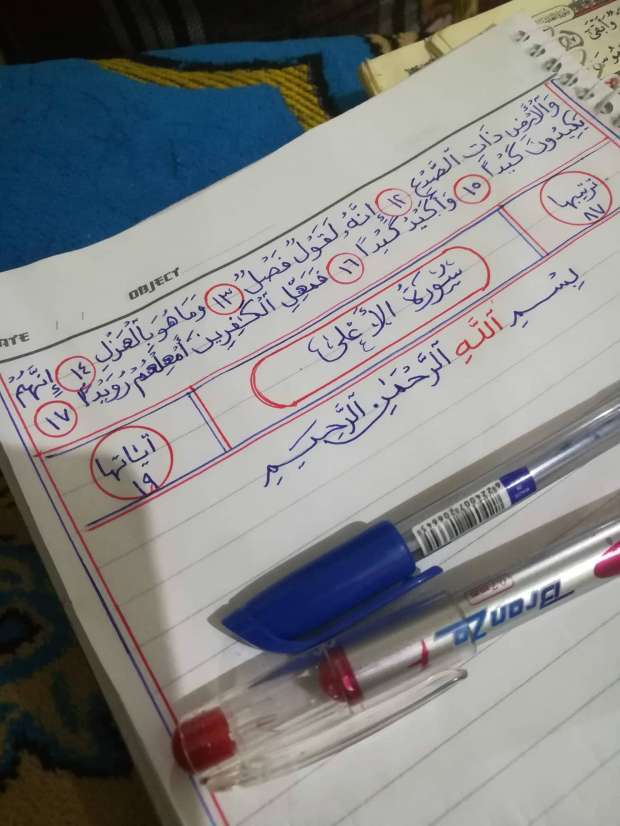 وَٱلْأَرْضِ ذَاتِ ٱلصَّدْعِ ١٢ إِنَّهُۥ لَقَوْلٌ فَصْلٌ ١٣ وَمَا هُوَ بِٱلْهَزْلِ ١٤ إِنَّهُمْ
يَكِيدُونَ كَيْدًا ١٥ وَأَكِيدُ كَيْدًا ١٦ فَمَهِّلِ ٱلْكَٰفِرِينَ أَمْهِلْهُمْ رُوَيْدًۢا ١٧
ترتيبها ٨٧
سُورَةُ الأَعْلَىٰ
آيَاتها ١٩
بِسْمِ ٱللَّهِ ٱلرَّحْمَٰنِ ٱلرَّحِيمِ
OBJECT
ATE / /
6224007206643
Bronze